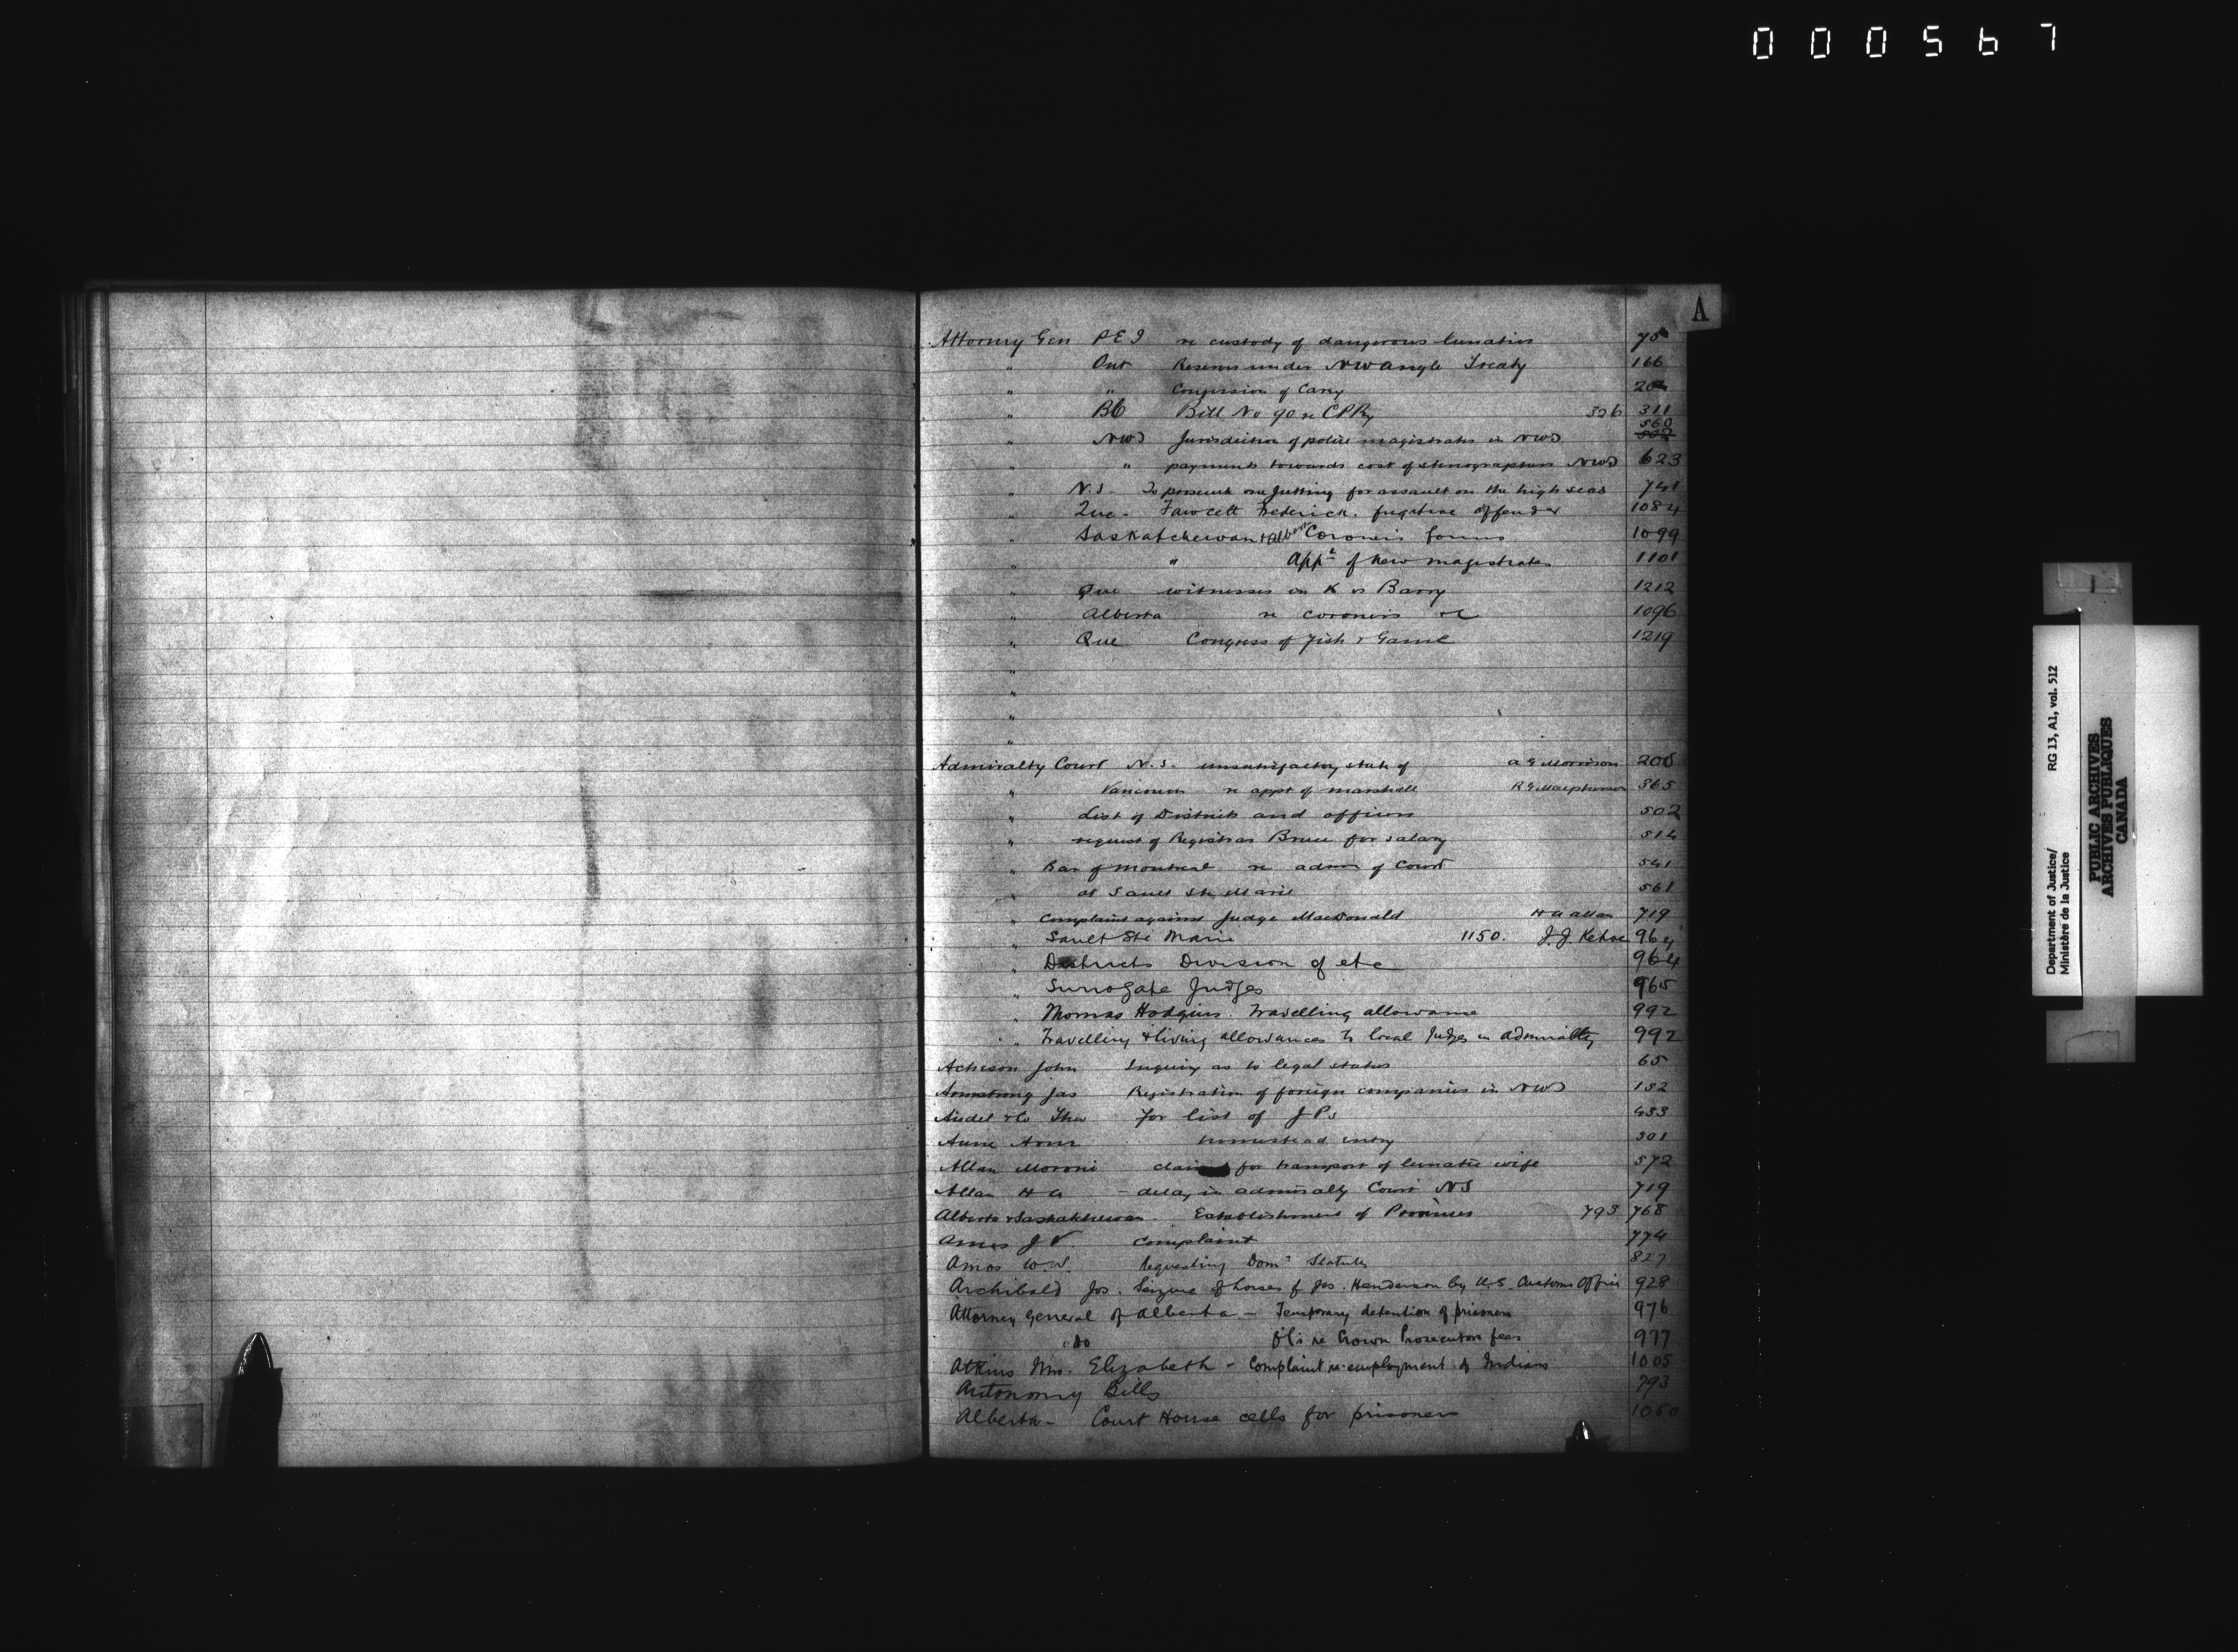 000567
A
Attorney Gen PEI re custody of dangerous lunatics 75
" Ont Reserves under NW Angle Treaty 166
" " Concession of Carry
" BC Bill No 90 re CPRy 326 311
560
" NWT Jurisdiction of police magistrates in NWT
" " payments towards cost of stenographers NWT 623
" N.S. To prosecute one for assault on the high seas 741
" Que - Fawcett Frederick. fugitive offender 1084
" Saskatchewan & Alberta Coroners forms 1099
" " Appt of new magistrates 1101
" Que witnesses in K vs Barry 1212
" Alberta re coroners &c 1096
" Que Congress of Fish & Game 1219
"
"
"
"
Admiralty Court N.S. unsatisfactory state of Morrison 200
" Vancouver re appt of marshall R G Macpherson 365
" List of Districts and officers 502
" request of Registrar Bruce for salary 514
" Bar of Montreal re admn of Court 541
" at Sault Ste Marie 561
" Complaint against Judge MacDonald H A Allan 719
" Sault Ste Marie 1150. J.J. Kehoe 964
" Districts Division of etc 964
" Surrogate Judges 965
" Thomas Hodgins. Travelling allowance 992
" Travelling & living allowances to local Judges in Admiralty 992
Acheson John Inquiry as to legal status 65
Armstrong Jas Registration of foreign companies in NWT 132
& Co for list of J Ps 433
homestead entry 501
Allan Moroni claim for transport of lunatic wife 572
Allan H A - delay in admiralty Court NS 719
Alberta & Saskatchewan - Establishment of Provinces 793 768
Ames J V complaint 774
Amos W.W. Requesting Domn Statutes 827
Archibald Jos. Seizure of horses of Jos. Henderson by U.S. Customs Officer 928
Attorney General of Alberta - Temporary detention of prisoners 976
do O/C's re Crown Prosecutors fees 977
Atkins Mrs. Elizabeth - Complaint re employment of Indians 1005
Autonomy Bills 793
Alberta - Court House cells for prisoners 1050
Department of Justice/
Ministère de la Justice
RG 13, A1, vol. 512
PUBLIC ARCHIVES
ARCHIVES PUBLIQUES
CANADA